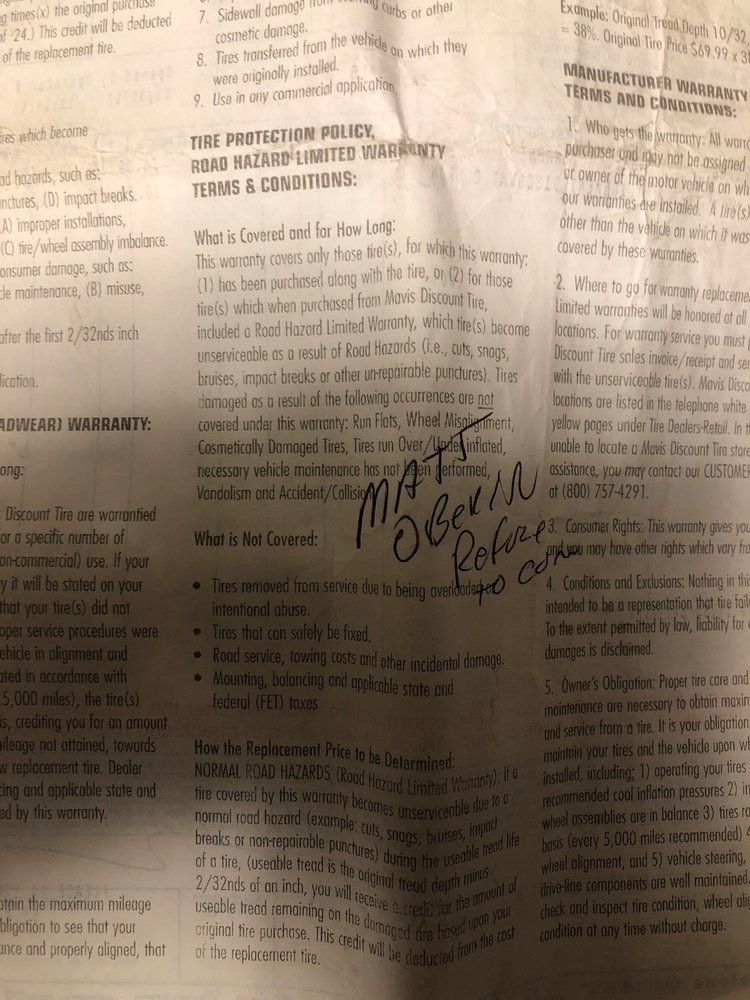 ng times(x) the original purchase
of 24.) This credit will be deducted
of the replacement tire.
ires which become
ad hazards, such as:
nctures, (D) impact breaks.
A) improper installations,
(C) tire/wheel assembly imbalance.
onsumer damage, such as:
cle maintenance, (B) misuse,
after the first 2/32nds inch
lication.
ADWEAR) WARRANTY:
ong:
Discount Tire are warrantied
or a specific number of
on-commercial) use. If your
y it will be stated on your
that your tire(s) did not
oper service procedures were
ehicle in alignment and
ated in accordance with
5,000 miles), the tire(s)
is, crediting you for an amount
ileage not attained, towards
w replacement tire. Dealer
cing and applicable state and
ed by this warranty.
btain the maximum mileage
bligation to see that your
ance and properly aligned, that
7. Sidewall damage from curbs or other
cosmetic damage.
8. Tires transferred from the vehicle on which they
were originally installed.
9. Use in any commercial application.
TIRE PROTECTION POLICY,
ROAD HAZARD LIMITED WARRANTY
TERMS & CONDITIONS:
What is Covered and for How Long:
This warranty covers only those tire(s), for which this warranty:
(1) has been purchased along with the tire, or (2) for those
tire(s) which when purchased from Mavis Discount Tire,
included a Road Hazard Limited Warranty, which tire(s) become
unserviceable as a result of Road Hazards (i.e., cuts, snags,
bruises, impact breaks or other un-repairable punctures). Tires
damaged as a result of the following occurrences are not
covered under this warranty: Run Flats, Wheel Misalignment,
Cosmetically Damaged Tires, Tires run Over/Under inflated,
necessary vehicle maintenance has not been performed,
Vandalism and Accident/Collision
MATT
OBERN
Refuze
to com
What is Not Covered:
• Tires removed from service due to being overloaded or
intentional abuse.
• Tires that can safely be fixed.
• Road service, towing costs and other incidental damage.
• Mounting, balancing and applicable state and
federal (FET) taxes
How the Replacement Price to be Determined:
NORMAL ROAD HAZARDS (Road Hazard Limited Warranty): If a
tire covered by this warranty becomes unserviceable due to a
normal road hazard (example: cuts, snags, bruises, impact
breaks or non-repairable punctures) during the useable tread life
of a tire, (useable tread is the original tread depth minus
2/32nds of an inch, you will receive a credit for the amount of
useable tread remaining on the damaged tire based upon your
original tire purchase. This credit will be deducted from the cost
of the replacement tire.
Example: Original Tread Depth 10/32,
= 38%. Original Tire Price $69.99 x 3
MANUFACTURER WARRANTY
TERMS AND CONDITIONS:
1. Who gets the warranty: All warr
purchaser and may not be assigned
or owner of the motor vehicle on wh
our warranties are installed. A tire(s)
other than the vehicle on which it was
covered by these warranties.
2. Where to go for warranty replaceme
Limited warranties will be honored at all
locations. For warranty service you must p
Discount Tire sales invoice/receipt and ser
with the unserviceable tire(s). Mavis Disco
locations are listed in the telephone white
yellow pages under Tire Dealers-Retail. In th
unable to locate a Mavis Discount Tire store
assistance, you may contact our CUSTOMER
at (800) 757-4291.
3. Consumer Rights: This warranty gives you
and you may have other rights which vary fro
4. Conditions and Exclusions: Nothing in this
intended to be a representation that tire fail
To the extent permitted by law, liability for
damages is disclaimed.
5. Owner's Obligation: Proper tire care and
maintenance are necessary to obtain maxim
and service from a tire. It is your obligation
maintain your tires and the vehicle upon wh
installed, including; 1) operating your tires
recommended cool inflation pressures 2) in
wheel assemblies are in balance 3) tires ro
basis (every 5,000 miles recommended) 4
wheel alignment, and 5) vehicle steering,
drive-line components are well maintained.
check and inspect tire condition, wheel alig
condition at any time without charge.